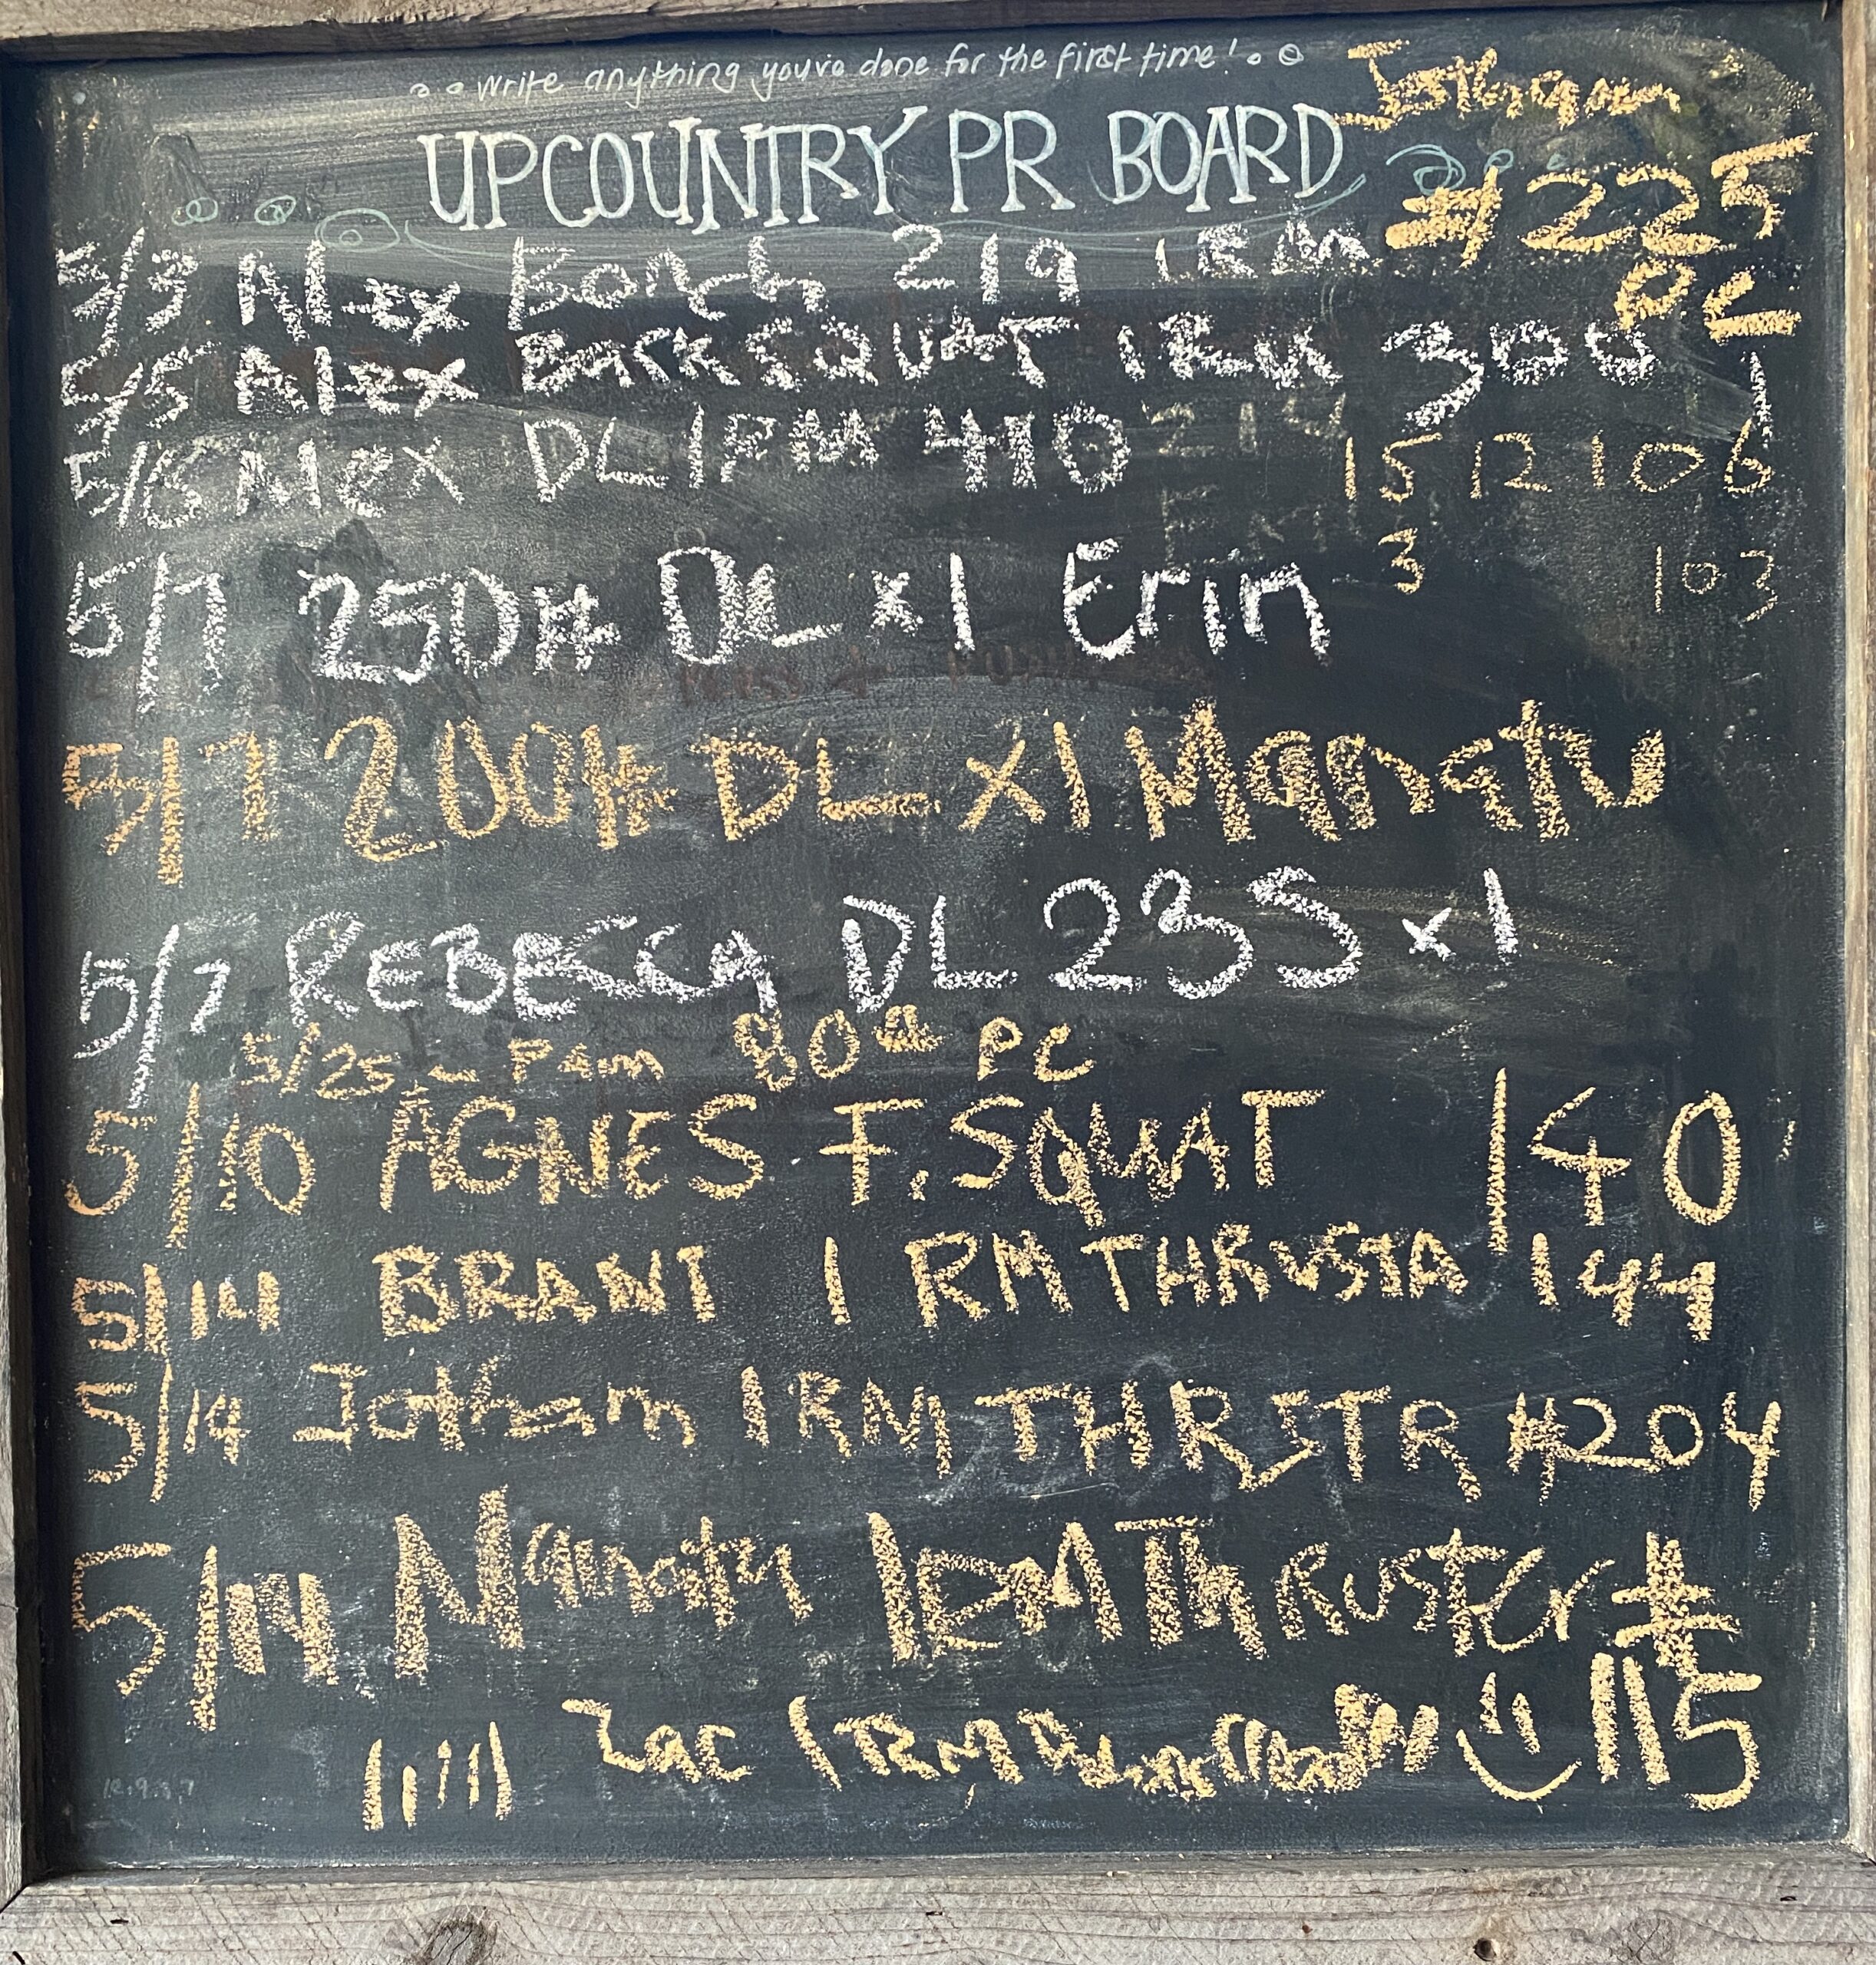 write anything you've done for the first time!
Jotham
UPCOUNTRY PR BOARD
#225
PC
5/3 Alex Bench 219 1RM
5/5 Alex Back SQUAT 1RM 300
5/6 Alex DL 1RM 410
15 12 10 6
3
10 3
5/7 250# DL x1 Erin
5/7 200# DL x1 Manatu
5/7 REBECCA DL 235 x1
5/25 - Pam 80# PC
5/10 AGNES F. SQUAT 140
5/14 BRANT 1 RM THRUSTA 144
5/14 Jotham 1RM THRSTR #204
5/14 Manatu 1RM Thruster #
115
Zac 1RM